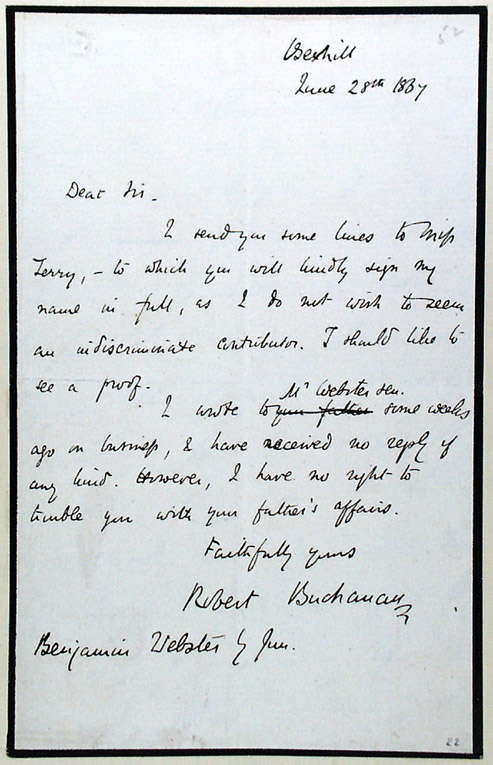 52
Bexhill
June 28th 1867
Dear Sir.
I send you some lines to Miss
Terry, – to which you will kindly sign my
name in full, as I do not wish to seem
an indiscriminate contributor. I should like to
see a proof.
Mr Webster sen.
I wrote to your father some weeks
ago on business, & have received no reply of
any kind. However, I have no right to
trouble you with your father's affairs.
Faithfully yours
Robert Buchanan
Benjamin Webster Jun.
22